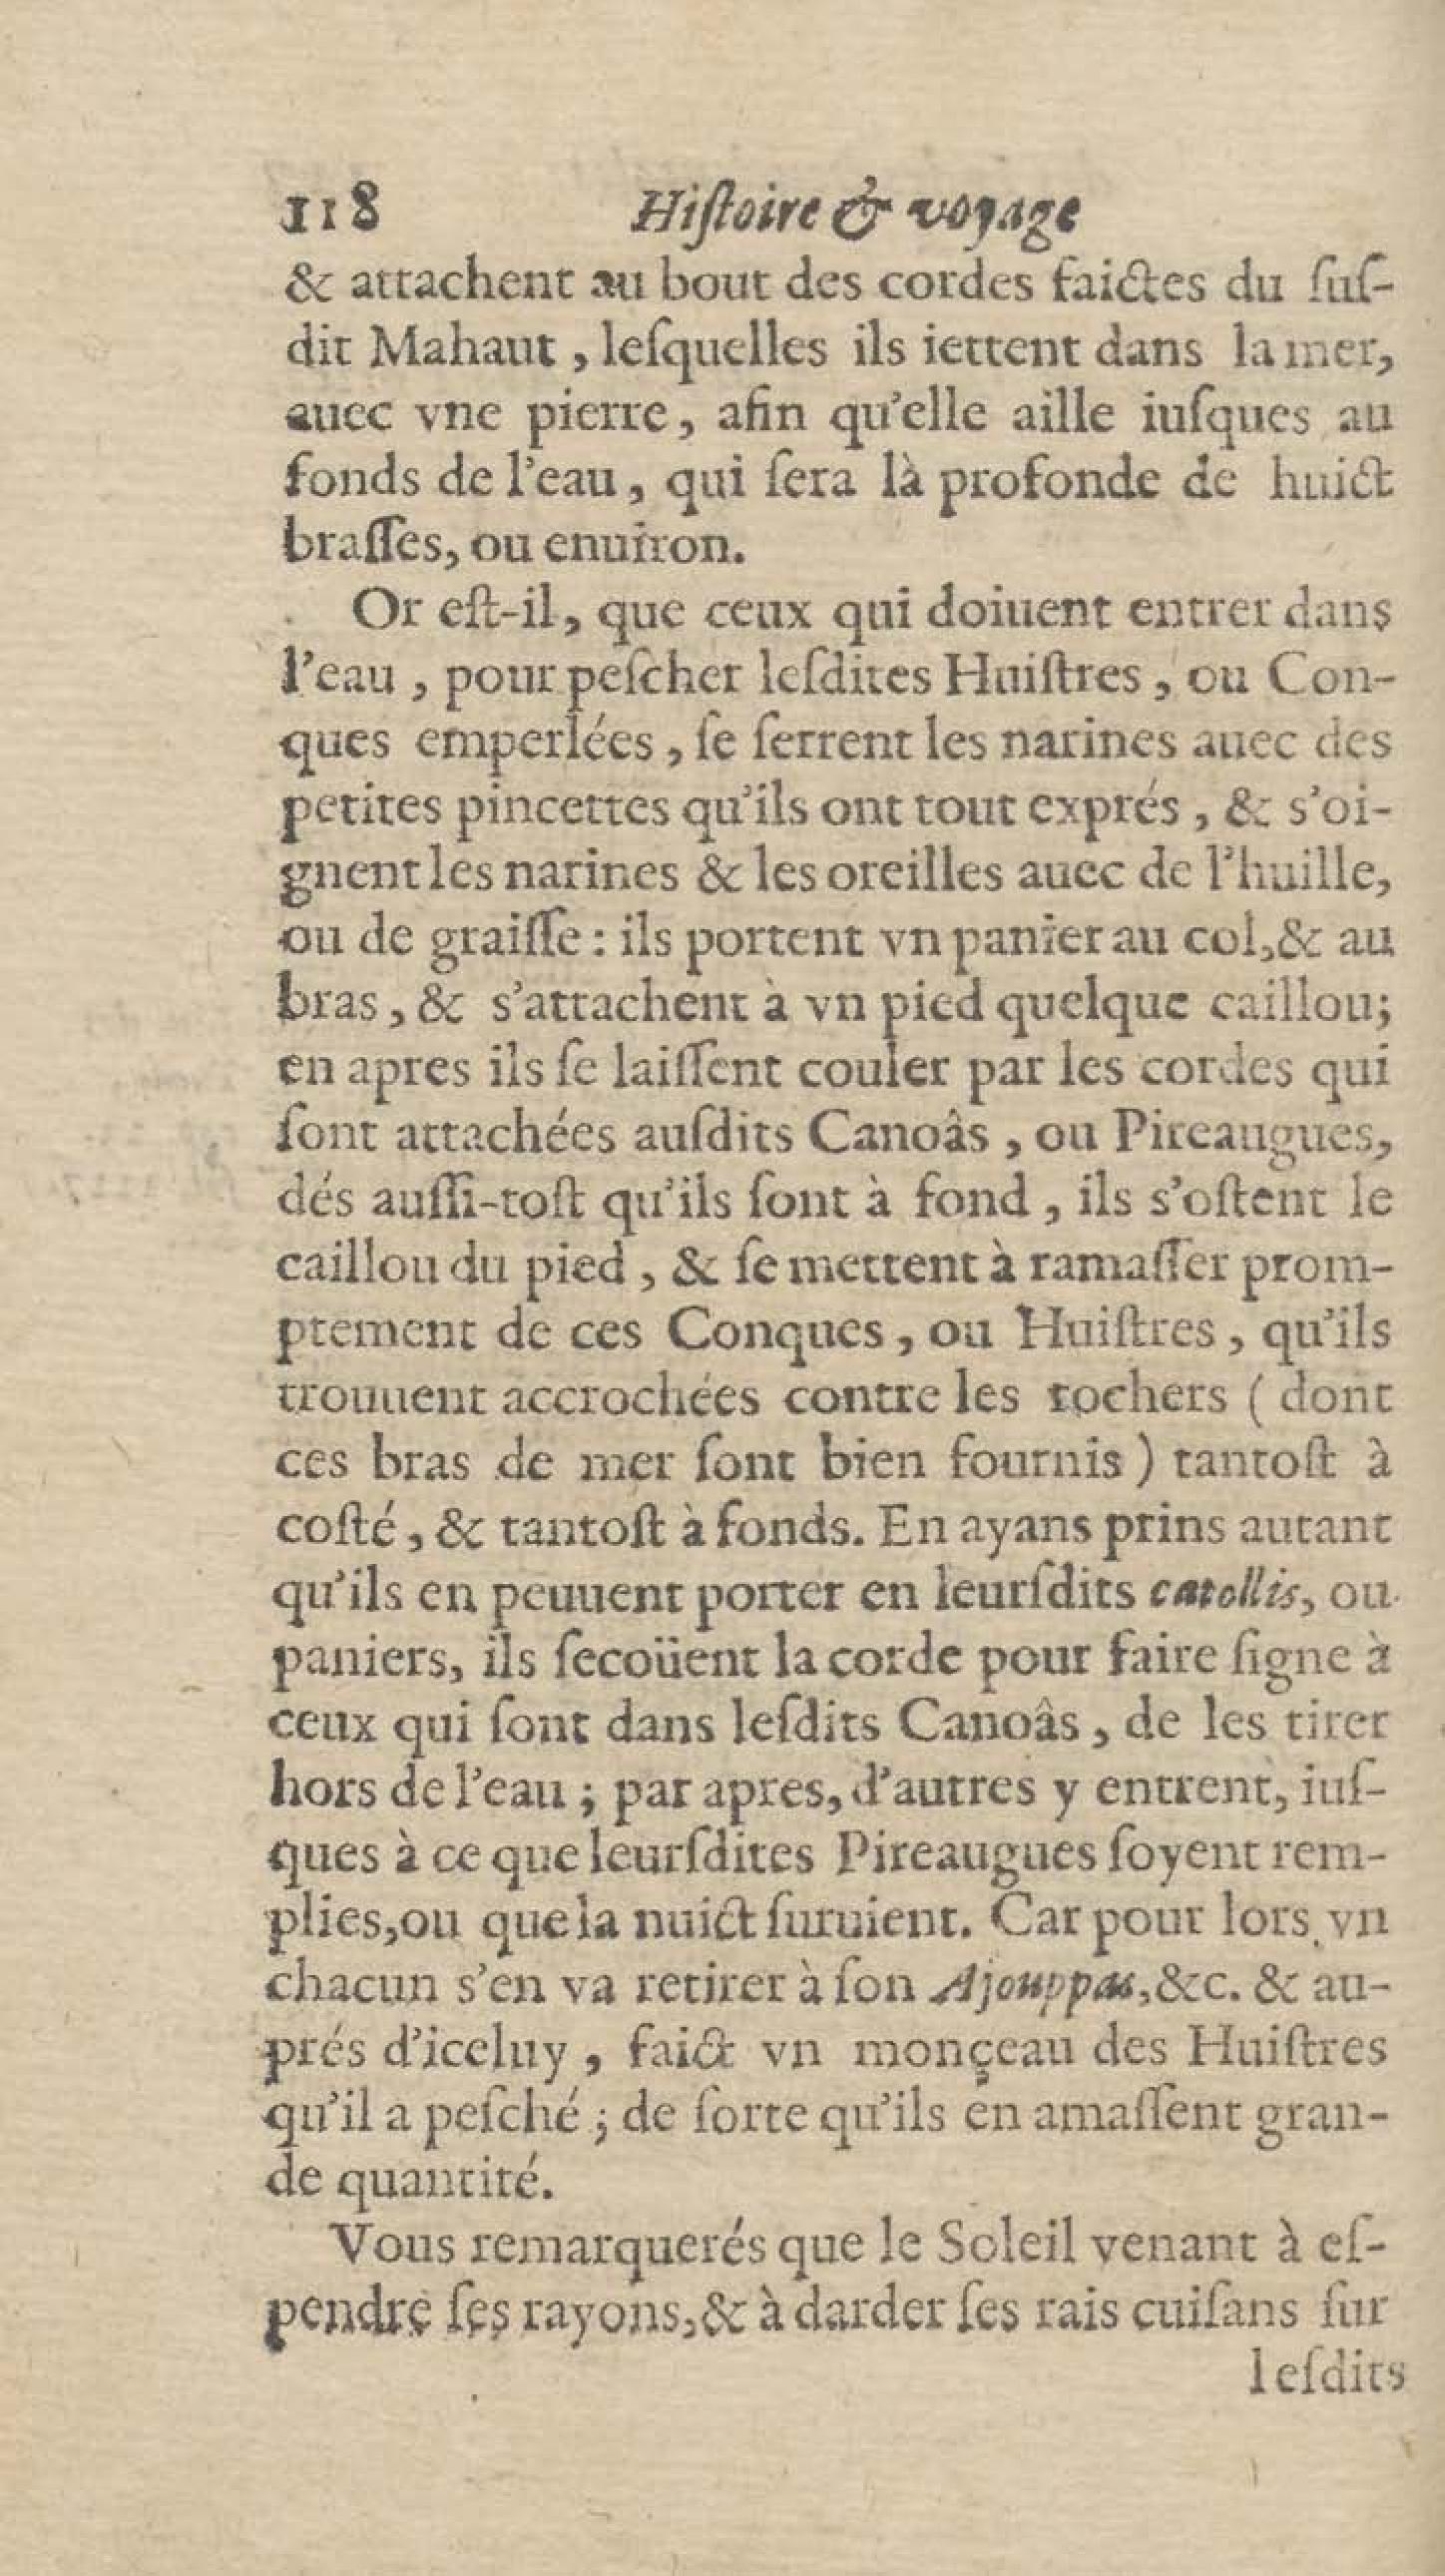 118 Hiſtoire & voyage
& attachent au bout des cordes faictes du ſuſ-
dit Mahaut, leſquelles ils iettent dans la mer,
auec vne pierre, afin qu'elle aille iuſques au
fonds de l'eau, qui ſera là profonde de huict
braſſes, ou enuiron.
Or eſt-il, que ceux qui doiuent entrer dans
l'eau, pour peſcher leſdites Huiſtres, ou Con-
ques emperlées, ſe ſerrent les narines auec des
petites pincettes qu'ils ont tout exprés, & s'oi-
gnent les narines & les oreilles auec de l'huille,
ou de graiſſe : ils portent vn panier au col, & au
bras, & s'attachent à vn pied quelque caillou;
en apres ils ſe laiſſent couler par les cordes qui
ſont attachées auſdits Canoâs, ou Pireaugues,
dés auſſi-toſt qu'ils ſont à fond, ils s'oſtent le
caillou du pied, & ſe mettent à ramaſſer prom-
ptement de ces Conques, ou Huiſtres, qu'ils
trouuent accrochées contre les rochers ( dont
ces bras de mer ſont bien fournis ) tantoſt à
coſté, & tantoſt à fonds. En ayans prins autant
qu'ils en peuuent porter en leurſdits catollis, ou
paniers, ils ſecoüent la corde pour faire ſigne à
ceux qui ſont dans leſdits Canoâs, de les tirer
hors de l'eau ; par apres, d'autres y entrent, iuſ-
ques à ce que leurſdites Pireaugues ſoyent rem-
plies, ou que la nuict ſuruient. Car pour lors vn
chacun s'en va retirer à ſon Ajouppas, &c. & au-
prés d'iceluy, faict vn monçeau des Huiſtres
qu'il a peſché ; de ſorte qu'ils en amaſſent gran-
de quantité.
Vous remarquerés que le Soleil venant à eſ-
pendre ſes rayons, & à darder ſes rais cuiſans ſur
leſdits